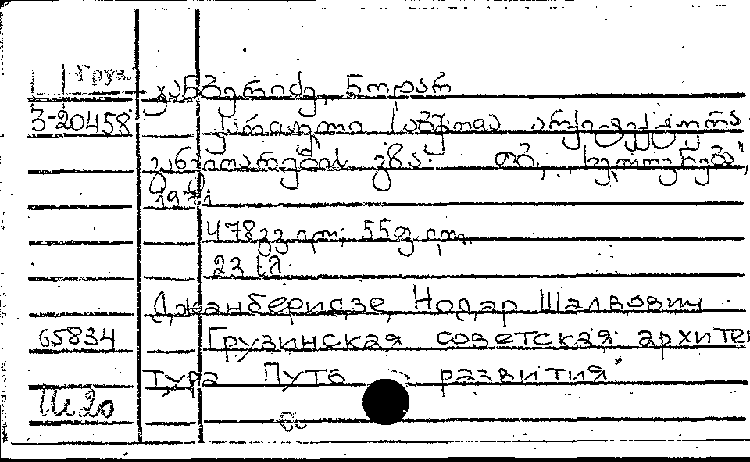 Груз.
ჯანბერიძე, ნოდარ
3-20458 ქართული საბჭოთა არქიტექტურა
განვითარების გზა. თბ., „ხელოვნება",
1971
478 გვ. ილ; 55 ფ. ილ.
23 სმ.
Джанберидзе, Нодар Шалвович
65834 Грузинская советская архитек
тура Путь развития
Ш 20